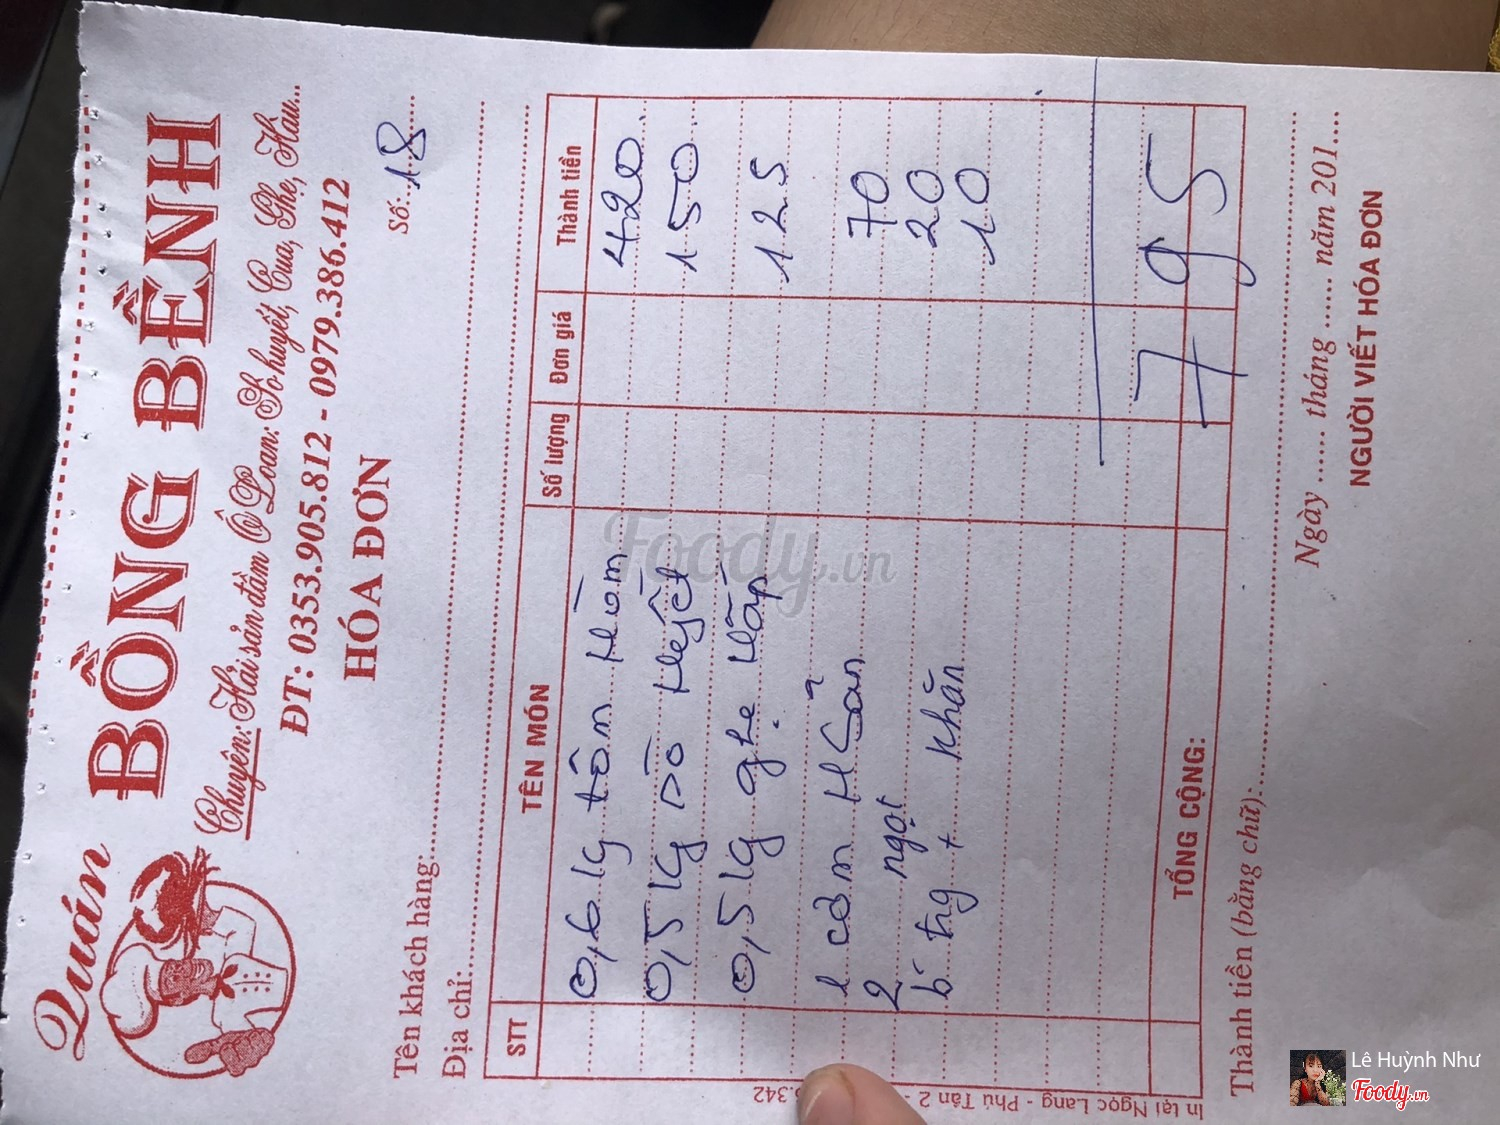 Quán
BỒNG BỀNH
Chuyên: Hải sản đầm Ô Loan: Sò huyết, Cua, Ghẹ, Hàu...
ĐT: 0353.905.812 - 0979.386.412
HÓA ĐƠN
Số: 18
Tên khách hàng:
Địa chỉ:
STT TÊN MÓN Số lượng Đơn giá Thành tiền
0,6 kg tôm Hùm 420
0,5 kg sò Huyết 150
0,5 kg ghẹ Hấp 125
1 cơm H Sản 70
2 ngọt 20
b tng + khăn 10
TỔNG CỘNG: 795
Thành tiền (bằng chữ):
Ngày ...... tháng ...... năm 201....
NGƯỜI VIẾT HÓA ĐƠN
In tại Ngọc Lang - Phú Tân 2 -
.342
Foody.vn
Lê Huỳnh Như
Foody.vn